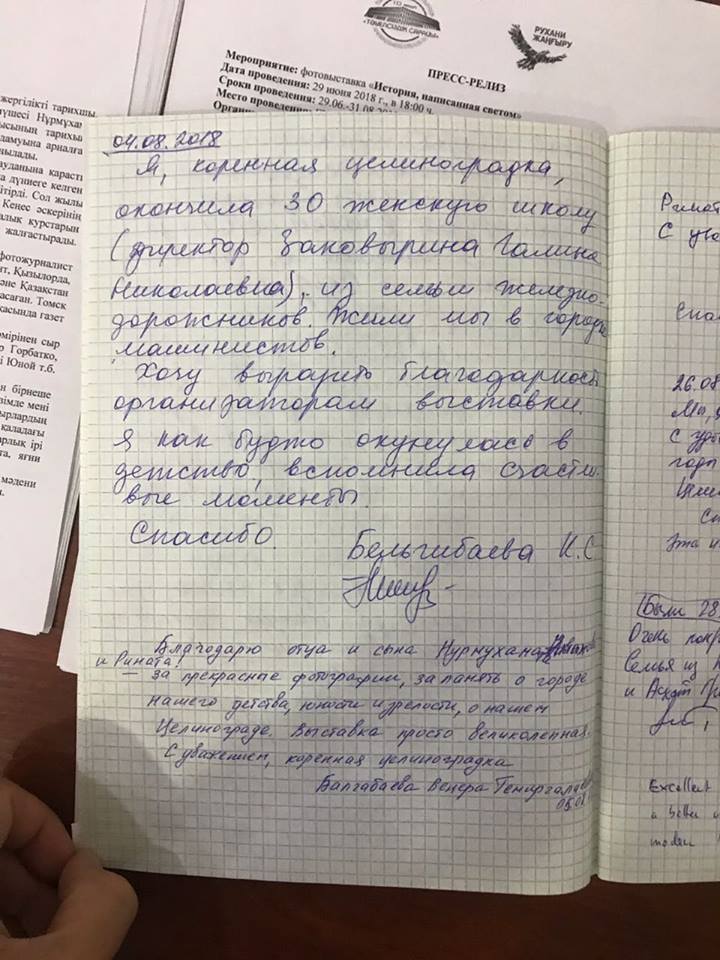 «ТӘУЕЛСІЗДІК САРАЙЫ»
РУХАНИ
ЖАҢҒЫРУ
ПРЕСС-РЕЛИЗ
Мероприятие: фотовыставка «История, написанная светом»
Дата проведения: 29 июня 2018 г., в 18:00 ч.
Сроки проведения: 29.06.-31.08
Место прове
Органи
жергілікті тарихшы,
мүшесі Нұрмұхан
ысының тарихы
дамуына арналға
нылады.
ауданына қарасты
а дүниеге келген
ітірді. Сол жылы
Кеңес әскерінің
алық курстарын
жалғастырады.
фотожурналист
нт, Қызылорда,
әне Қазақстан
асаған. Томск
қасында газет
өмірінен сыр
р Горбатко,
і Юной т.б.
н бірнеше
зімде мені
ырлардың
қаладағы
арлық ірі
та, яғни
мәдени
04.08.2018
Я, коренная целиноградка,
окончила 30 женскую школу
(директор Заковырина Галина
Николаевна), из семьи железно-
дорожников. Жили мы в городе
машинистов.
Хочу выразить благодарность
организаторам выставки.
Я как буджо окунулась в
детство, вспомнила счастли-
вые моменты.
Спасибо.
Бельгибаева К.С
Благодарю отца и сына Нурмухана
и Рината!
— за прекрасные фотографии, за память о городе
нашего детства, юности и зрелости, о нашем
Целинограде. Выставка просто великолепная.
С уважением, коренная целиноградка
Балгабаева Венера
05.08
С ува
Спа
26.08
Мы,
с удо
годы
Цели
Сп
Эта
Были 28
Очень понр
Семья из
и Асхат
Excellent
a better
modern